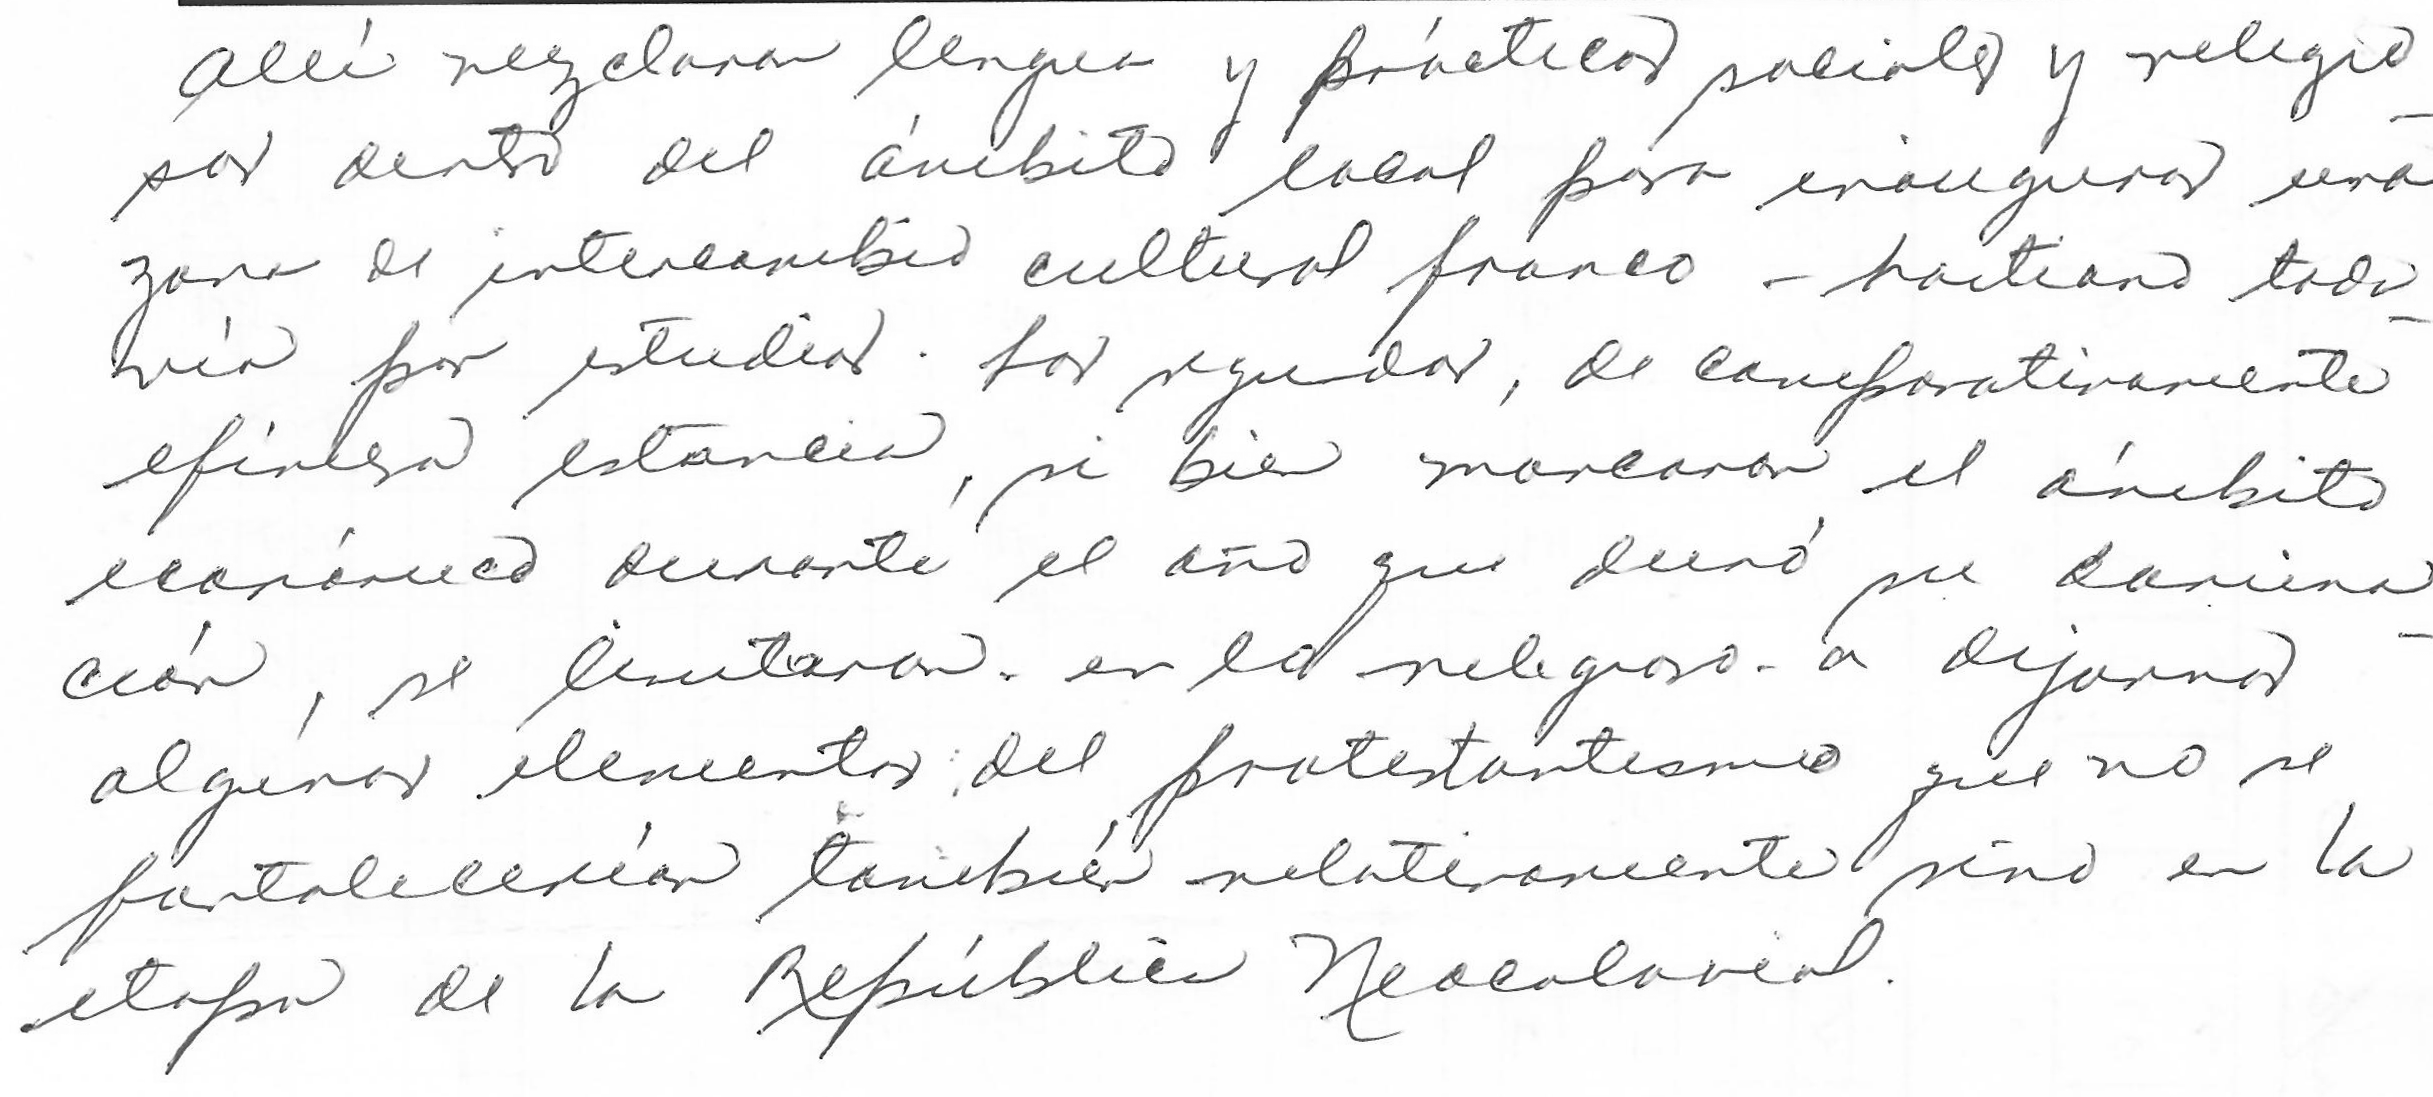 Allí mezclaron lengua y prácticas sociales y religio-
sas dentro del ámbito local para inaugurar una
zona de intercambio cultural franco-haitiano toda-
vía por estudiar. Los segundos, de comparativamente
efímera estancia, si bien marcaron el ámbito
económico durante el año que duró su domina-
ción, se limitaron - en lo religioso - a dejarnos
algunos elementos del protestantismo que no se
fortalecerían también relativamente sino en la
etapa de la República Neocolonial.